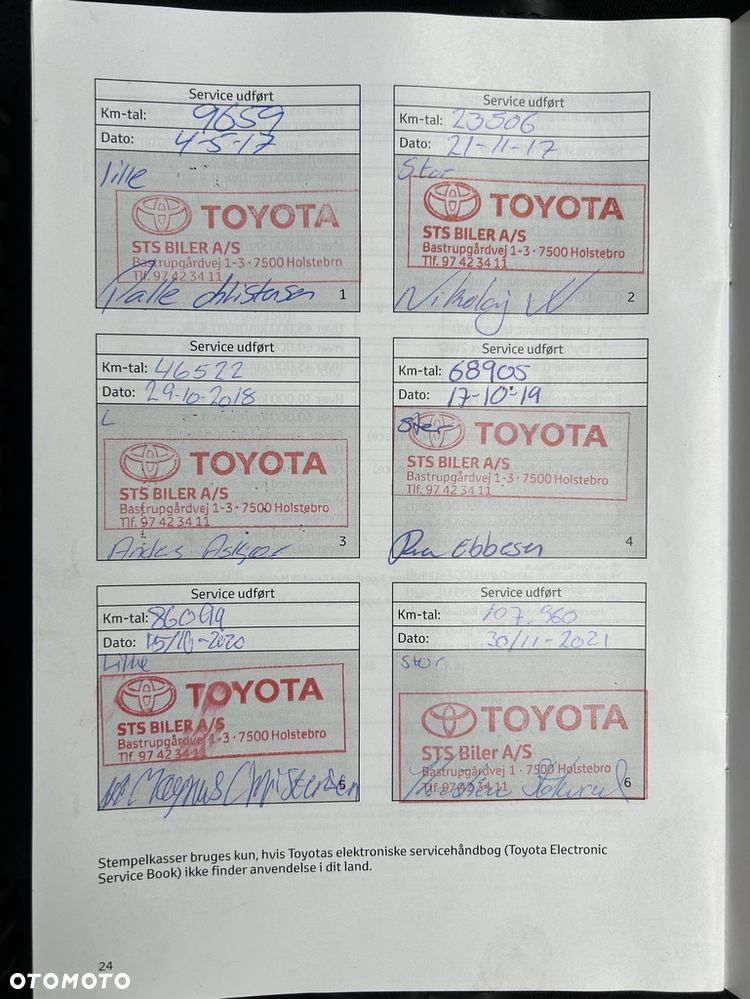 Service udført
Km-tal: 9659
Dato: 4-5-17
lille
TOYOTA
STS BILER A/S
Bastrupgårdvej 1-3 · 7500 Holstebro
Tlf. 97 42 34 11
Palle Christensen
1
Service udført
Km-tal: 23506
Dato: 21-11-17
Stor
TOYOTA
STS BILER A/S
Bastrupgårdvej 1-3 · 7500 Holstebro
Tlf. 97 42 34 11
Nikolaj
2
Service udført
Km-tal: 46522
Dato: 29-10-2018
L
TOYOTA
STS BILER A/S
Bastrupgårdvej 1-3 · 7500 Holstebro
Tlf. 97 42 34 11
3
Service udført
Km-tal: 68905
Dato: 17-10-19
Stor
TOYOTA
STS BILER A/S
Bastrupgårdvej 1-3 · 7500 Holstebro
Tlf. 97 42 34 11
Ebbesen
4
Service udført
Km-tal:
Dato: 15/10-2020
Lille
TOYOTA
STS BILER A/S
Bastrupgårdvej 1-3 · 7500 Holstebro
Tlf. 97 42 34 11
Magnus Christensen
5
Service udført
Km-tal: 107.960
Dato: 30/11-2021
Stor
TOYOTA
STS Biler A/S
Bastrupgårdvej 1 · 7500 Holstebro
Tlf. 97 42 34 11
6
Stempelkasser bruges kun, hvis Toyotas elektroniske servicehåndbog (Toyota Electronic
Service Book) ikke finder anvendelse i dit land.
24
OTOMOTO